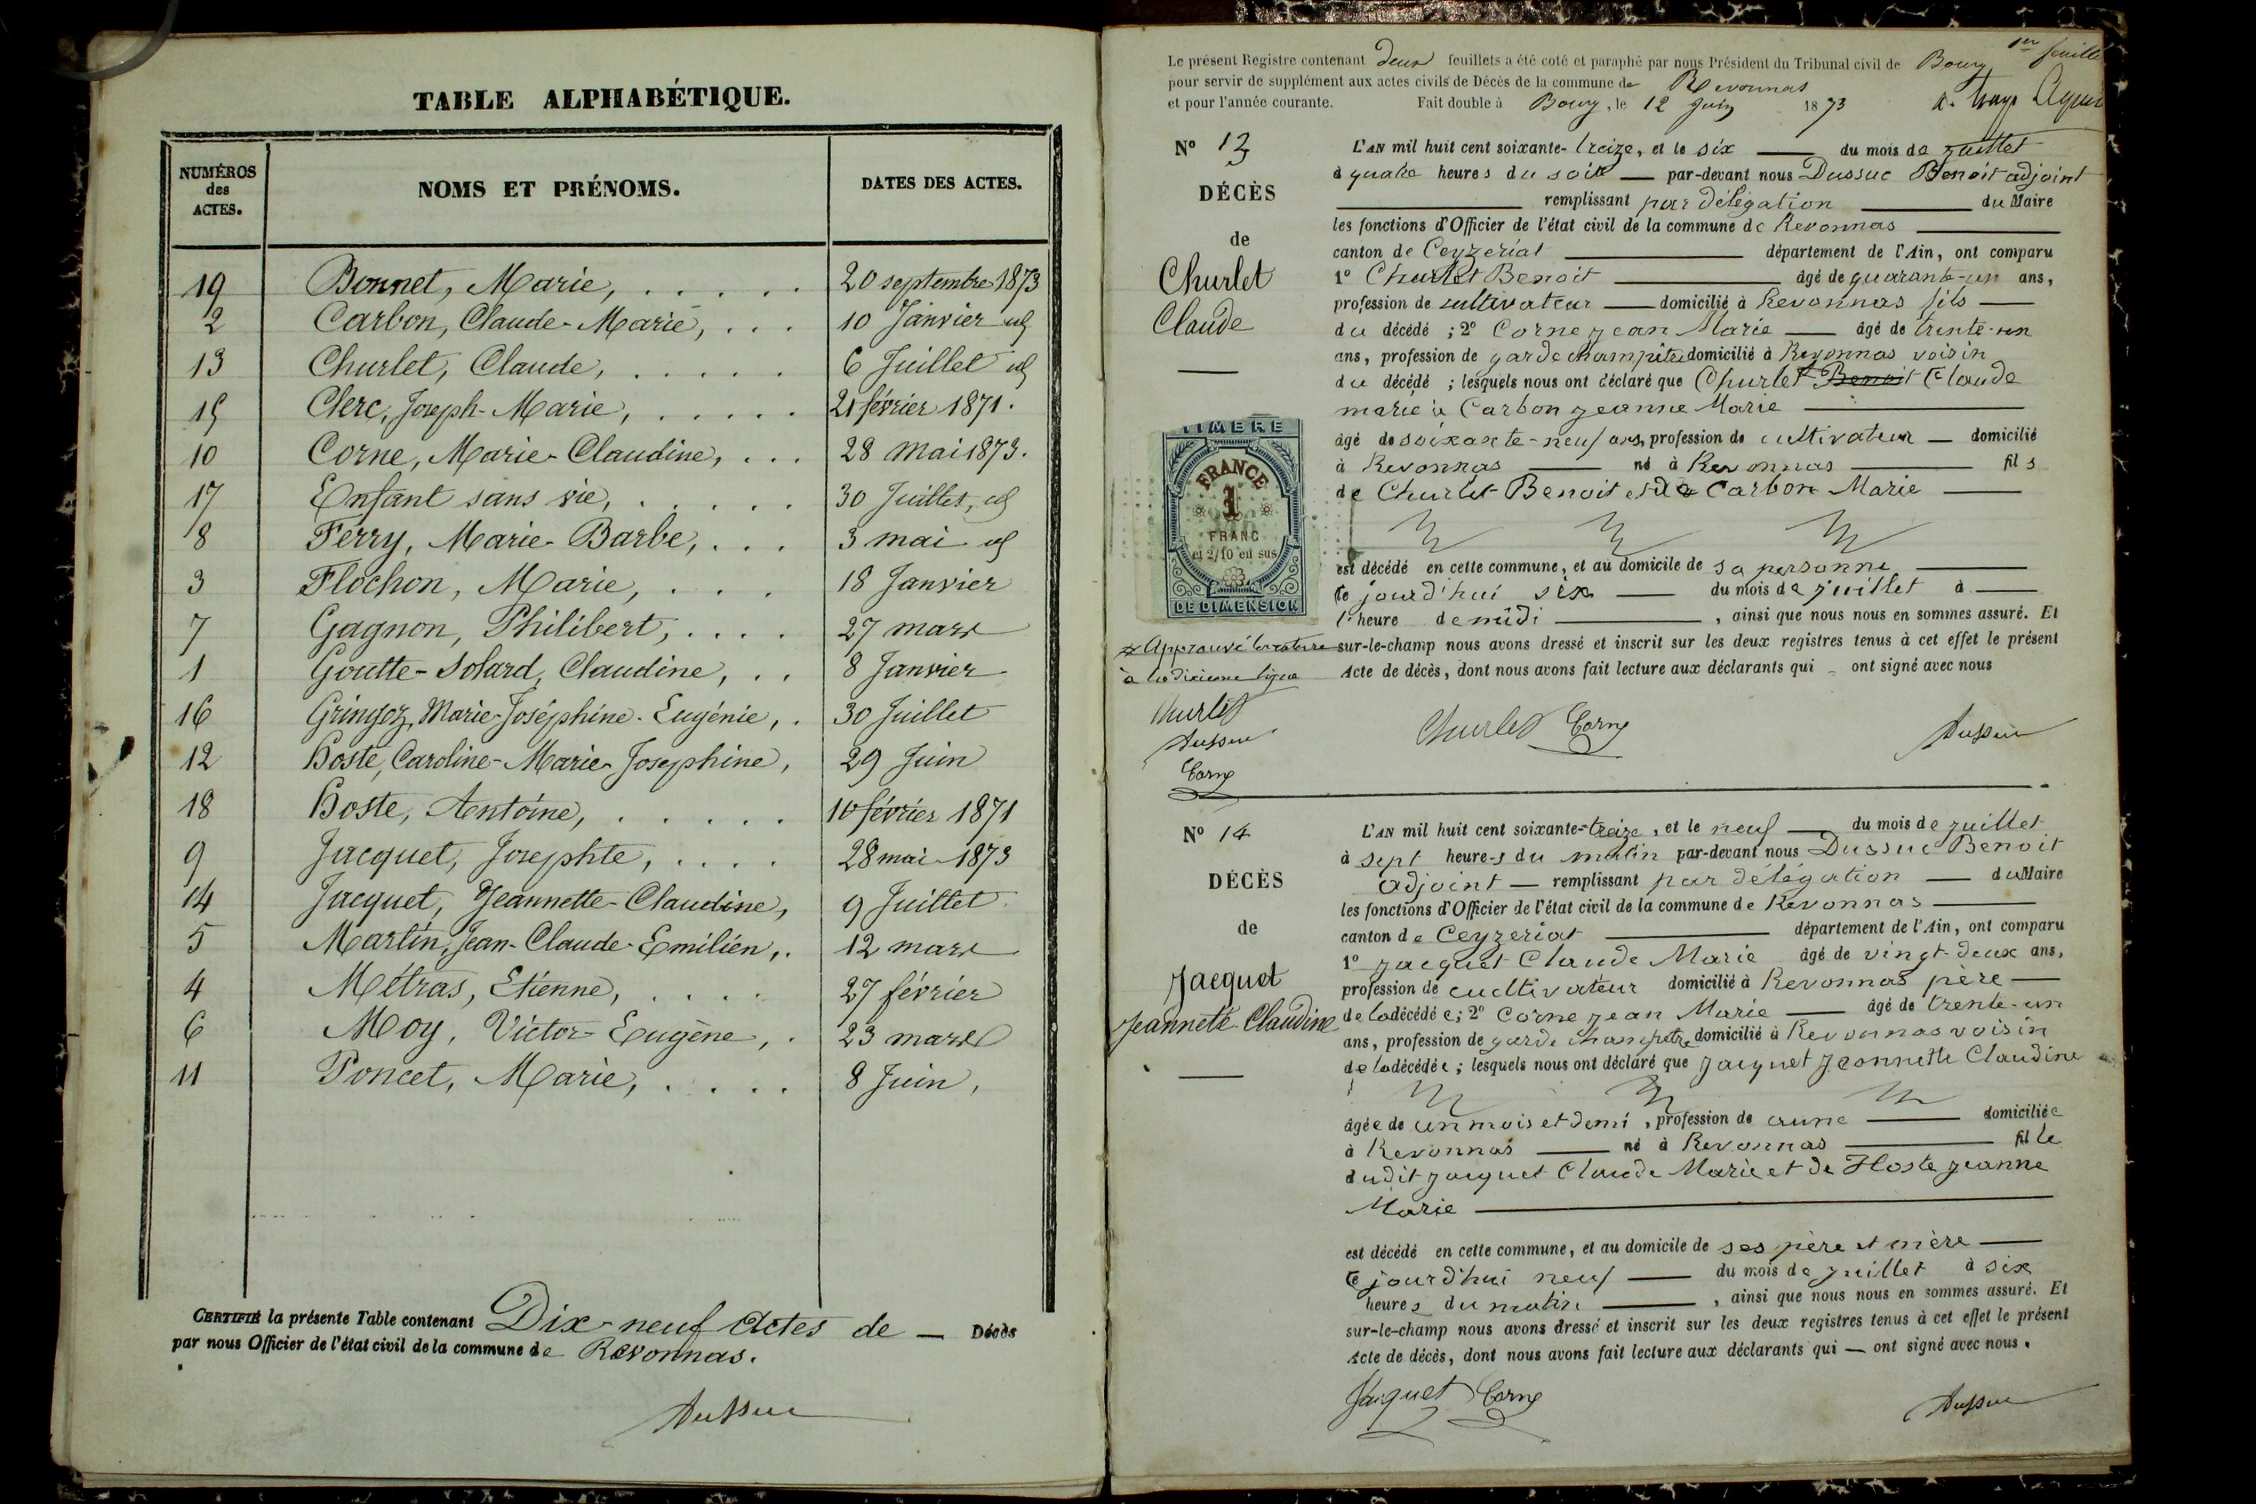 TABLE ALPHABÉTIQUE.
NUMÉROS des ACTES. NOMS ET PRÉNOMS. DATES DES ACTES.
19 Bonnet, Marie, . . . . . 20 septembre 1873
2 Carbon, Claude-Marie, . . . 10 Janvier id
13 Churlet, Claude, . . . . . 6 Juillet id
15 Clerc, Joseph-Marie, . . . . . 21 février 1871.
10 Corne, Marie-Claudine, . . . 28 Mai 1873.
17 Enfant sans vie, . . . . . 30 Juillet, id
8 Ferry, Marie-Barbe, . . . 3 mai id
3 Flochon, Marie, . . . . 18 Janvier
7 Gagnon, Philibert, . . . . 27 mars
1 Goutte-Solard, Claudine, . . 8 Janvier
16 Gringoz, Marie-Joséphine-Eugénie, . 30 Juillet
12 Hoste, Caroline-Marie-Josephine, 29 Juin
18 Hoste, Antoine, . . . . . 10 février 1871
9 Jacquet, Josephte, . . . . 28 mai 1873
14 Jacquet, Jeannette-Claudine, 9 Juillet
5 Martin, Jean-Claude-Emilien, . 12 mars
4 Métras, Etienne, . . . . 27 février
6 Moy, Victor-Eugène, . 23 mars
11 Poncet, Marie, . . . . 8 Juin,
CERTIFIÉ la présente Table contenant Dix-neuf Actes de — Décès
par nous Officier de l'état civil de la commune de Revonnas.
Dussuc
1er feuillet
Le présent Registre contenant deux feuillets a été coté et paraphé par nous Président du Tribunal civil de Bourg
pour servir de supplément aux actes civils de Décès de la commune de Revonnas
et pour l'année courante. Fait double à Bourg, le 12 Juin 1873
N° 13
DÉCÈS
de
Churlet
Claude
L'AN mil huit cent soixante-treize, et le six du mois de juillet
à quatre heures du soir par-devant nous Dussuc Benoit adjoint
remplissant par délégation du Maire
les fonctions d'Officier de l'état civil de la commune de Revonnas
canton de Ceyzeriat département de l'Ain, ont comparu
1° Churlet Benoit âgé de quarante-un ans,
profession de cultivateur domicilié à Revonnas fils
du décédé ; 2° Corne jean Marie âgé de trente-un
ans, profession de garde champêtre domicilié à Revonnas voisin
du décédé ; lesquels nous ont déclaré que Churlet Benoit Claude
marié à Carbon jeanne Marie
âgé de soixante-neuf ans, profession de cultivateur domicilié
à Revonnas né à Revonnas fils
de Churlet Benoit et de Carbon Marie
est décédé en cette commune, et au domicile de sa personne
ce jourd'hui six du mois de juillet à
l'heure de midi , ainsi que nous nous en sommes assuré. Et
sur-le-champ nous avons dressé et inscrit sur les deux registres tenus à cet effet le présent
Acte de décès, dont nous avons fait lecture aux déclarants qui ont signé avec nous
TIMBRE
FRANCE
1
FRANC
et 2/10 en sus
DE DIMENSION
Approuvé la rature
à la dixieme ligne
Churlet
Dussuc
Corne
Churlet Corne Dussuc
N° 14
DÉCÈS
de
Jacquet
Jeannete Claudine
L'AN mil huit cent soixante-treize, et le neuf du mois de juillet
à sept heures du matin par-devant nous Dussuc Benoit
adjoint — remplissant par délégation — du Maire
les fonctions d'Officier de l'état civil de la commune de Revonnas
canton de Ceyzeriat département de l'Ain, ont comparu
1° jacquet Claude Marie âgé de vingt-deux ans,
profession de cultivateur domicilié à Revonnas père
de la décédée; 2° Corne jean Marie âgé de trente-un
ans, profession de garde champetre domicilié à Revonnas voisin
de la décédée ; lesquels nous ont déclaré que jacquet jeannette Claudine
âgée de un mois et demi, profession de aucune domiciliée
à Revonnas né à Revonnas fille
dudit jacquet Claude Marie et de Hoste jeanne
Marie
est décédé en cette commune, et au domicile de ses père et mère
ce jourd'hui neuf du mois de juillet à six
heures du matin , ainsi que nous nous en sommes assuré. Et
sur-le-champ nous avons dressé et inscrit sur les deux registres tenus à cet effet le présent
Acte de décès, dont nous avons fait lecture aux déclarants qui — ont signé avec nous.
Jacquet Corne Dussuc